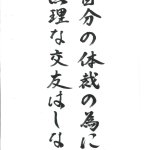 自分の体裁の為に
無理な交友はしな